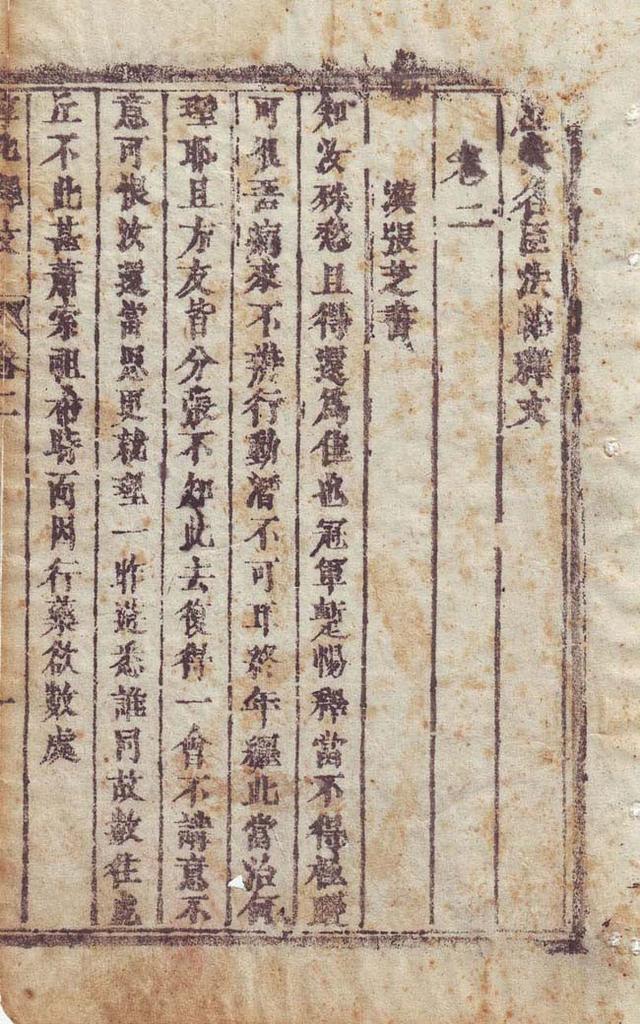 名臣法帖釋文
卷二
漢張芝書
知汝殊愁且得還爲佳也冠軍蹔暢釋當不得極蹤
可恨吾病來不辨行動潛不可耳終年纏此當治何
理耶且方友皆分張不知此去復得一會不講意不
意可恨汝還當思更就理一昨遊悉誰同故數往虎
丘不此甚蕭索祖希時面因行藥欲數處
釋文
卷二
一